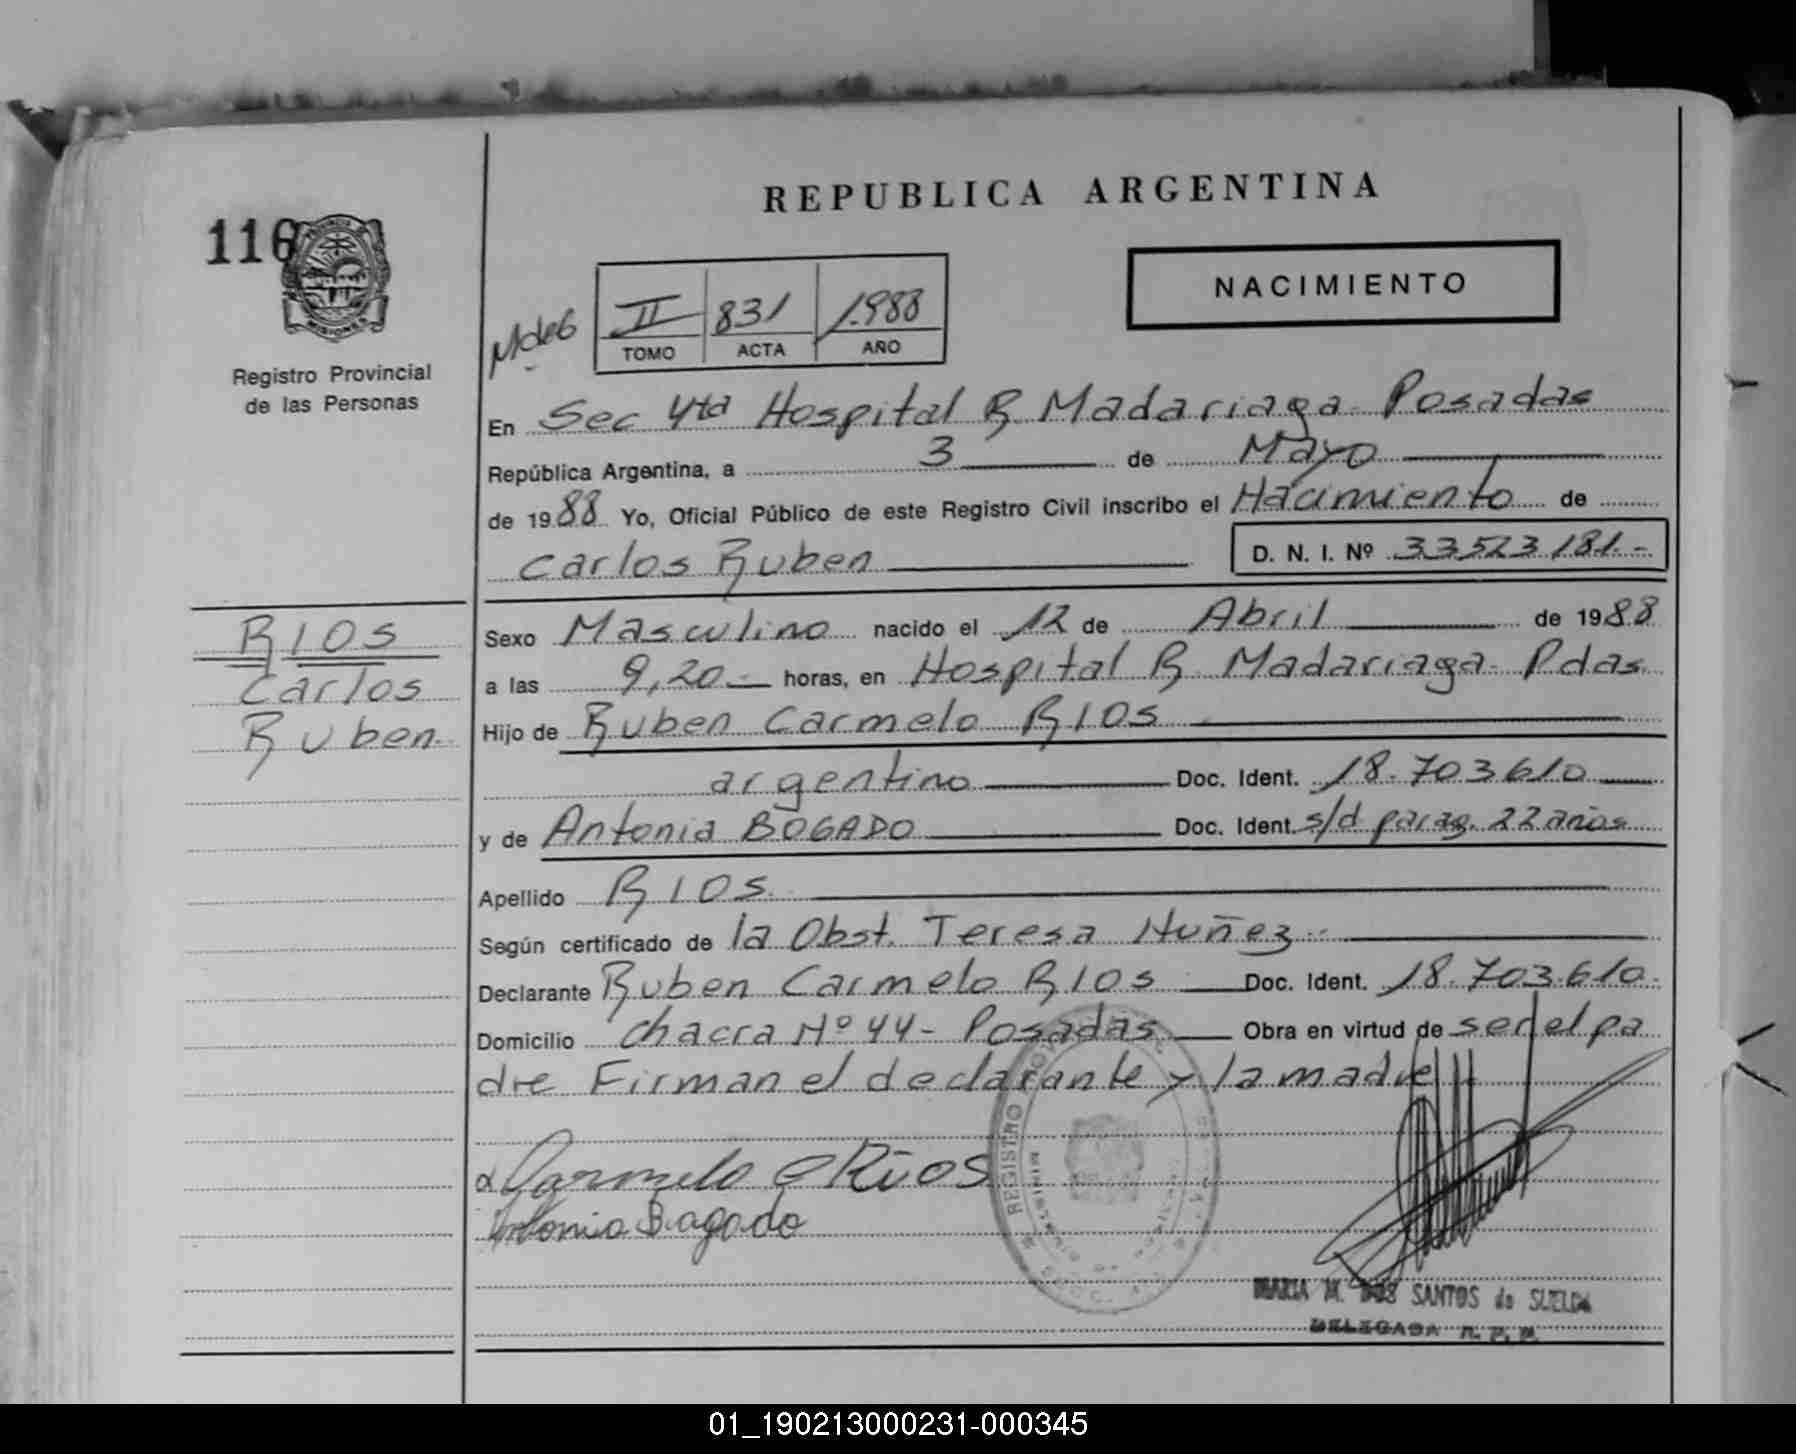 REPUBLICA ARGENTINA
116
NACIMIENTO
II 831 1.988
TOMO ACTA AÑO
Registro Provincial
de las Personas
MISIONES
En Sec 4ta Hospital R. Madariaga Posadas
República Argentina, a 3 de Mayo
de 1988 Yo, Oficial Público de este Registro Civil inscribo el Nacimiento de
Carlos Ruben D. N. I. Nº 33523181.-
RIOS
Carlos
Ruben
Sexo Masculino nacido el 12 de Abril de 1988
a las 9,20.- horas, en Hospital R. Madariaga- Pdas
Hijo de Ruben Carmelo RIOS
argentino Doc. Ident. 18.703610
y de Antonia BOGADO Doc. Ident. s/d parag. 22 años
Apellido RIOS.
Según certificado de la Obst. Teresa Nuñez
Declarante Ruben Carmelo RIOS Doc. Ident. 18.703.610.
Domicilio chacra Nº 44- Posadas Obra en virtud de ser el pa
dre Firman el declarante y la madre
Carmelo Rios
Antonia Bogado
REGISTRO
MARIA M. DOS SANTOS de SUELDA
DELEGADA R. P. P.
01_190213000231-000345